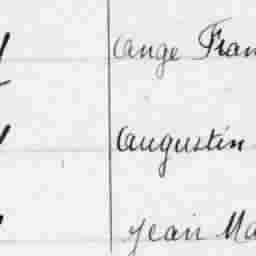 Ange Fran
Augustin
Jean Ma